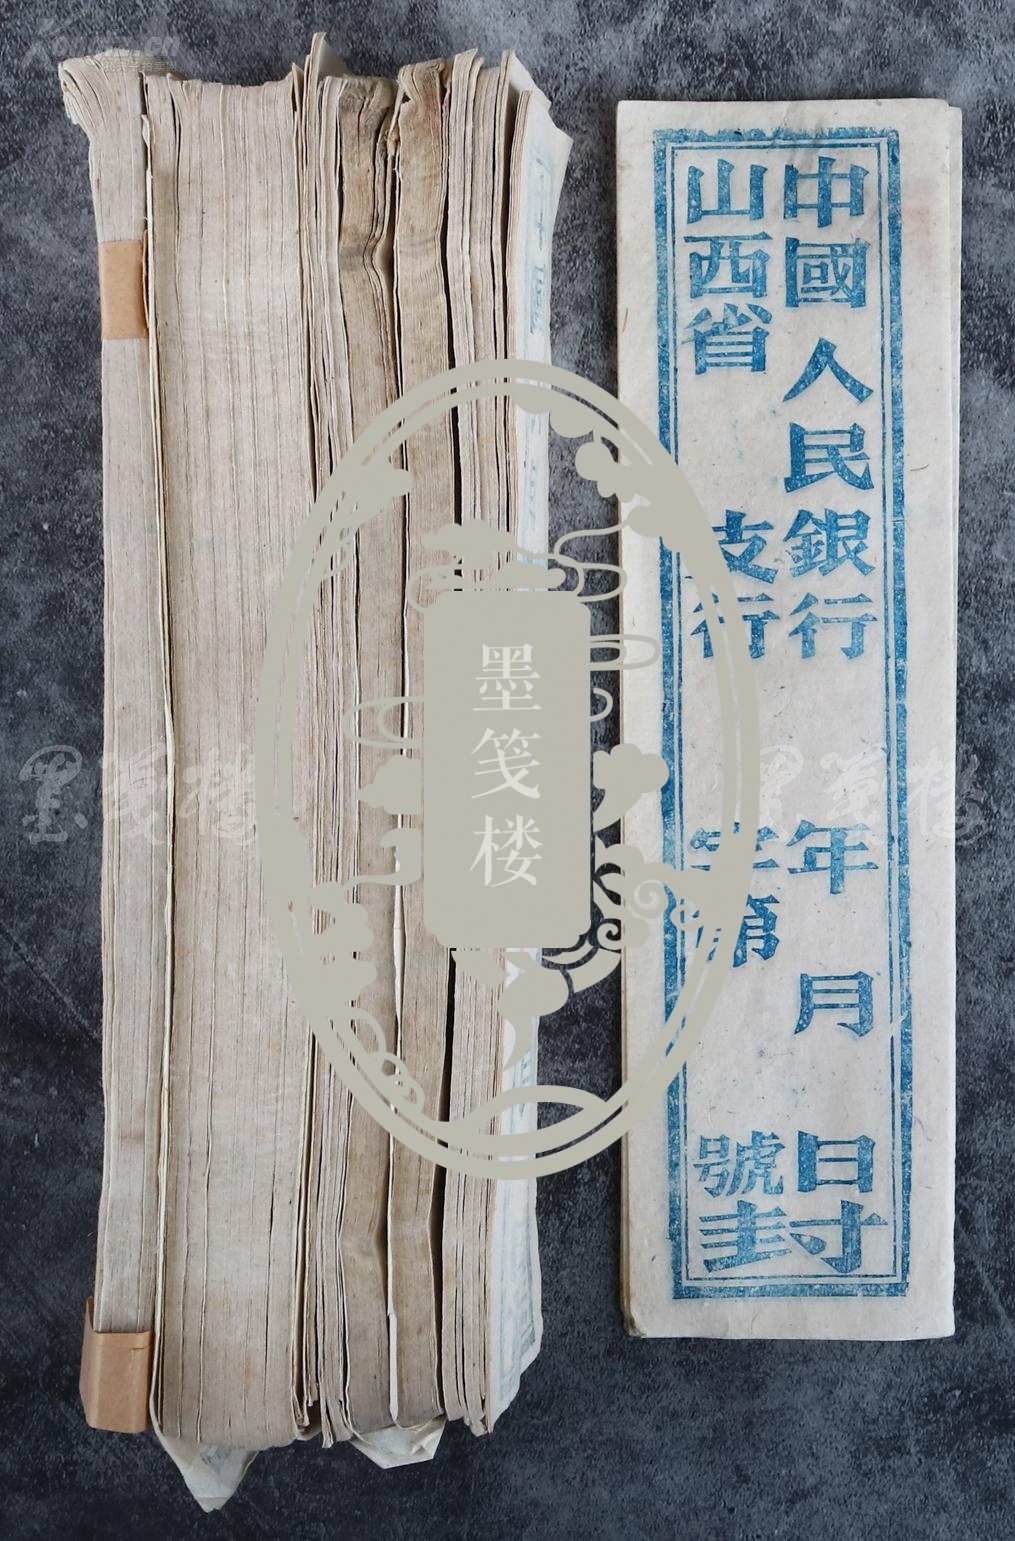 中國人民銀行 年 月 日封
山西省 支行 字第 號
墨笺楼
墨笺楼
墨笺楼